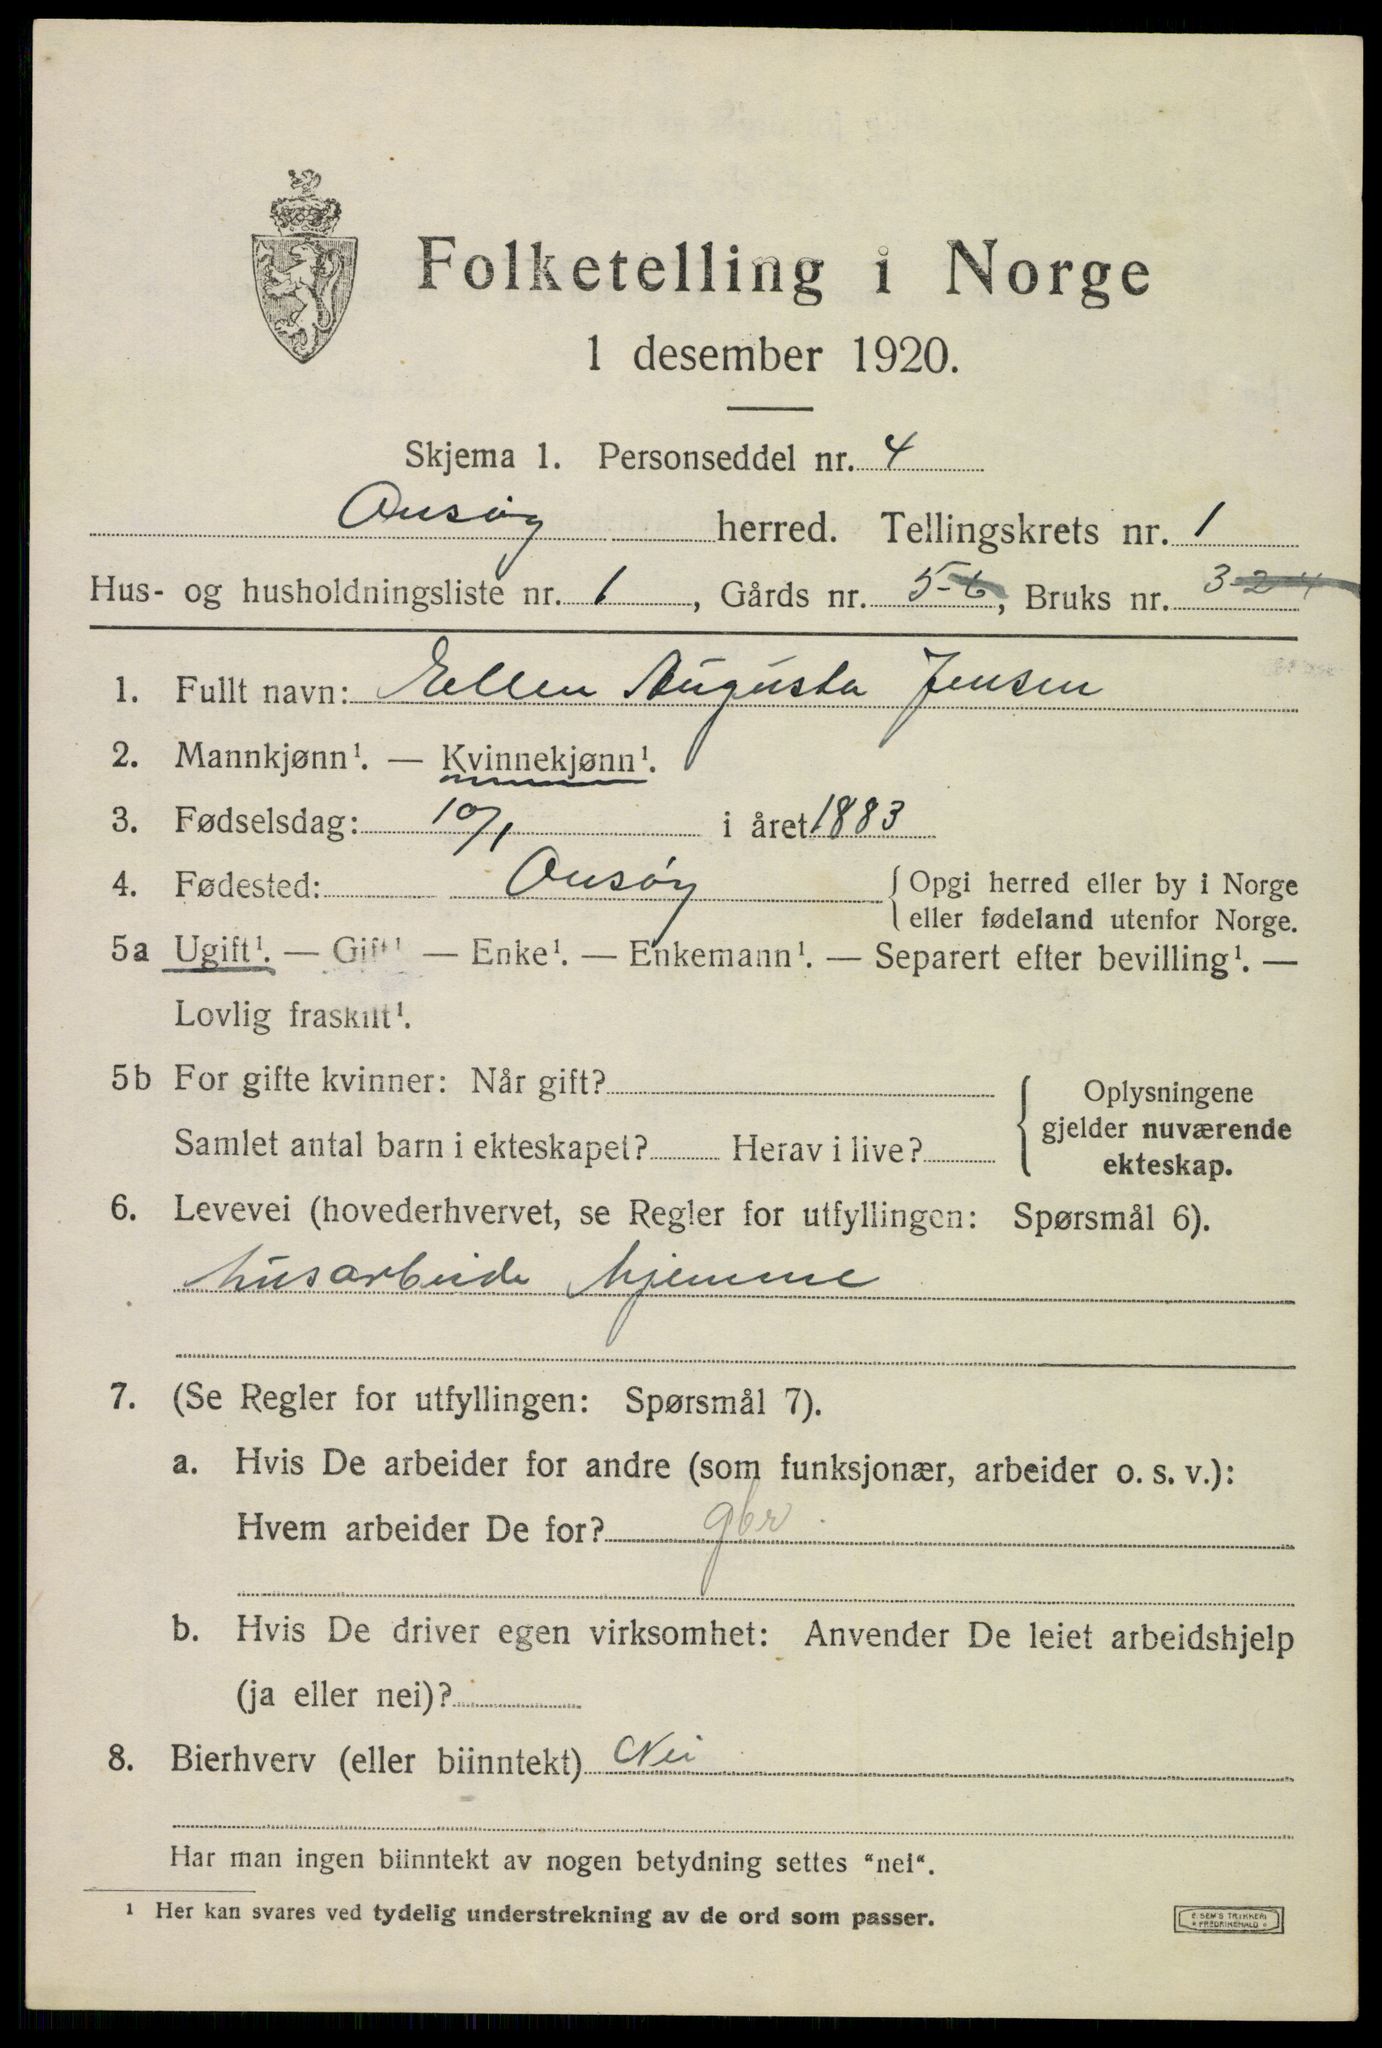 Folketelling i Norge
1 desember 1920.
Skjema 1. Personseddel nr. 4
Onsøy herred. Tellingskrets nr. 1
Hus- og husholdningsliste nr. 1, Gårds nr. 5-6, Bruks nr. 3-24
1. Fullt navn: Ellen Augusta Jensen
2. Mannkjønn¹. — Kvinnekjønn¹.
3. Fødselsdag: 10/1 i året 1883
4. Fødested: Onsøy { Opgi herred eller by i Norge
eller fødeland utenfor Norge.
5a Ugift¹. — Gift¹ — Enke¹. — Enkemann¹. — Separert efter bevilling¹. —
Lovlig fraskilt¹.
5b For gifte kvinner: Når gift? { Oplysningene
gjelder nuværende
Samlet antal barn i ekteskapet? Herav i live? ekteskap.
6. Levevei (hovederhvervet, se Regler for utfyllingen: Spørsmål 6).
husarbeide hjemme
7. (Se Regler for utfyllingen: Spørsmål 7).
a. Hvis De arbeider for andre (som funksjonær, arbeider o. s. v.):
Hvem arbeider De for? gbr
b. Hvis De driver egen virksomhet: Anvender De leiet arbeidshjelp
(ja eller nei)?
8. Bierhverv (eller biinntekt) Nei
Har man ingen biinntekt av nogen betydning settes "nei".
¹ Her kan svares ved tydelig understrekning av de ord som passer.
E. SEM'S TRYKKERI
FREDRIKSHALD